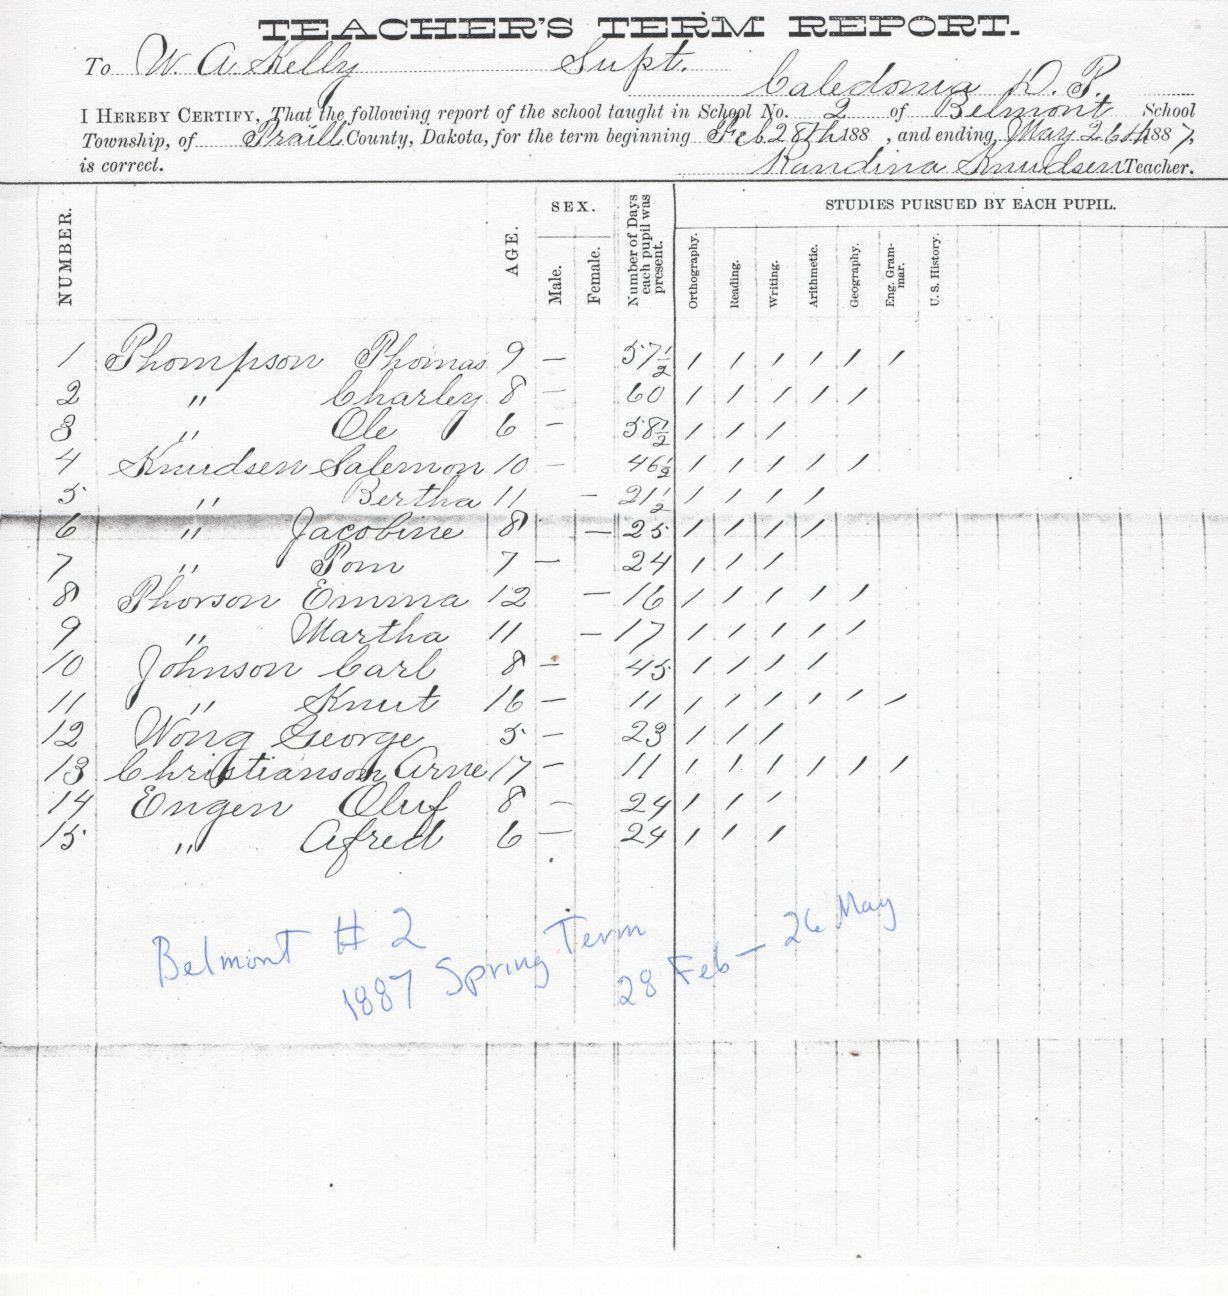 TEACHER'S TERM REPORT.
To W. A. Kelly Supt.
Caledonia D. T.
I HEREBY CERTIFY, That the following report of the school taught in School No. 2 of Belmont School
Township, of Traill County, Dakota, for the term beginning Feb 28th 188 , and ending May 26th 1887,
is correct. Randina Knudsen Teacher.
NUMBER. AGE. SEX. Male. Female. Number of Days each pupil was present. STUDIES PURSUED BY EACH PUPIL.
Orthography. Reading. Writing. Arithmetic. Geography. Eng. Gram-mar. U. S. History.
1 Thompson Thomas 9 – 57½ / / / / / /
2 " Charley 8 – 60 / / / / /
3 " Ole 6 – 58½ / / /
4 Knudsen Salemon 10 – 46½ / / / / /
5 " Bertha 11 – 21½ / / / /
6 " Jacobine 8 – 25 / / / /
7 " Tom 7 – 24 / / /
8 Thorson Emma 12 – 16 / / / / /
9 " Martha 11 – 17 / / / / /
10 Johnson Carl 8 – 45 / / / /
11 " Knut 16 – 11 / / / / / /
12 Wong George 5 – 23 / / /
13 Christianson Arne 17 – 11 / / / / / /
14 Engen Oluf 8 – 24 / / /
15 " Afred 6 – 24 / / /
Belmont # 2
1887 Spring Term
28 Feb – 26 May